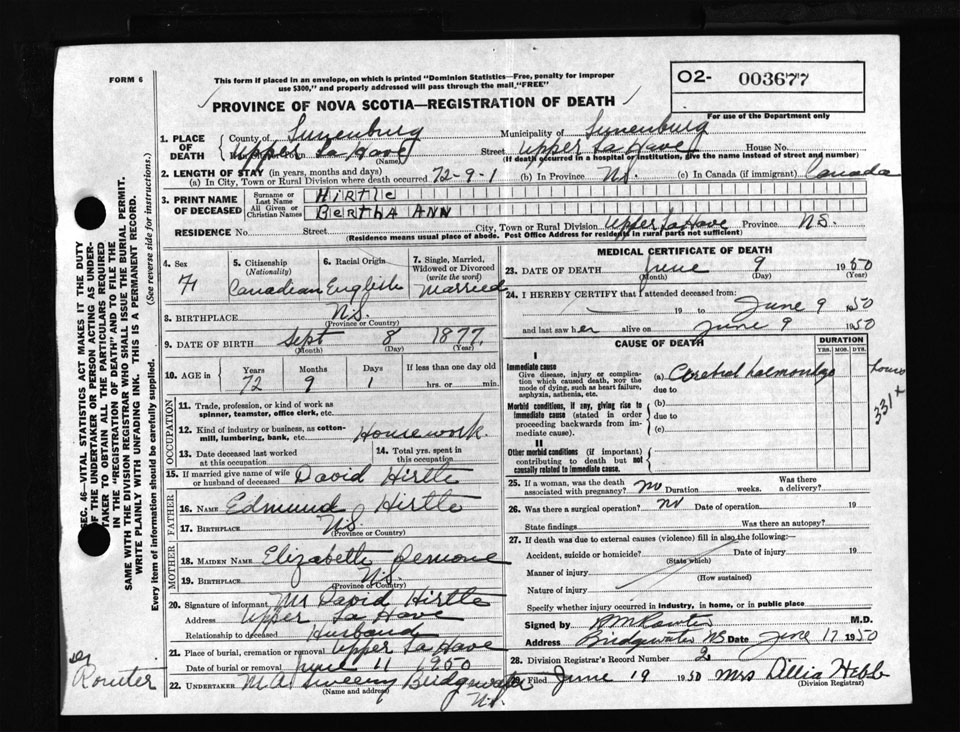 FORM 6
This form if placed in an envelope, on which is printed "Dominion Statistics—Free, penalty for improper
use $300," and properly addressed will pass through the mail, "FREE"
PROVINCE OF NOVA SCOTIA—REGISTRATION OF DEATH
O2- 003677
For use of the Department only
SEC. 46—VITAL STATISTICS ACT MAKES IT THE DUTY
OF THE UNDERTAKER OR PERSON ACTING AS UNDER-
TAKER TO OBTAIN ALL THE PARTICULARS REQUIRED
IN THE "REGISTRATION OF DEATH" AND TO FILE THE
SAME WITH THE DIVISION REGISTRAR WHO SHALL ISSUE THE BURIAL PERMIT.
WRITE PLAINLY WITH UNFADING INK. THIS IS A PERMANENT RECORD.
Every item of information should be carefully supplied. (See reverse side for instructions.)
1. PLACE OF DEATH County of Lunenburg Municipality of Lunenburg
Upper La Have (Name) Street Upper La Have House No.
(If death occurred in a hospital or institution, give the name instead of street and number)
2. LENGTH OF STAY (in years, months and days)
(a) In City, Town or Rural Division where death occurred 72-9-1 (b) In Province NS. (c) In Canada (if immigrant) Canada
3. PRINT NAME OF DECEASED Surname or Last Name HIRTLE
All Given or Christian Names BERTHA ANN
RESIDENCE No. Street City, Town or Rural Division Upper La Have Province NS.
(Residence means usual place of abode. Post Office Address for residents in rural parts not sufficient)
4. Sex F
5. Citizenship (Nationality) Canadian
6. Racial Origin English
7. Single, Married, Widowed or Divorced (write the word) Married
8. BIRTHPLACE N.S. (Province or Country)
9. DATE OF BIRTH Sept 8 1877. (Month) (Day) (Year)
10. AGE in Years 72 Months 9 Days 1 If less than one day hrs. or min.
OCCUPATION
11. Trade, profession, or kind of work as spinner, teamster, office clerk, etc.
12. Kind of industry or business, as cotton-mill, lumbering, bank, etc. Housework.
13. Date deceased last worked at this occupation
14. Total yrs. spent in this occupation
15. If married give name of wife or husband of deceased David Hirtle
FATHER
16. NAME Edmund Hirtle
17. BIRTHPLACE N.S. (Province or Country)
MOTHER
18. MAIDEN NAME Elizabeth Demone
19. BIRTHPLACE N.S. (Province or Country)
20. Signature of informant Mr David Hirtle
Address Upper La Have
Relationship to deceased Husband
21. Place of burial, cremation or removal Upper La Have
Date of burial or removal June 11 1950
22. UNDERTAKER M.A. Sweeny Bridgewater N.S. (Name and address)
MEDICAL CERTIFICATE OF DEATH
23. DATE OF DEATH June 9 1950
(Month) (Day) (Year)
24. I HEREBY CERTIFY that I attended deceased from:
19 to June 9 1950
and last saw her alive on June 9 1950
CAUSE OF DEATH
DURATION
YRS. MOS. DYS.
I
Immediate cause
Give disease, injury or complication which caused death, not the mode of dying, such as heart failure, asphyxia, asthenia, etc.
(a) Cerebral haemorrhage
due to
Morbid conditions, if any, giving rise to immediate cause (stated in order proceeding backwards from immediate cause).
(b)
due to
(c)
331 x
II
Other morbid conditions (if important) contributing to death but not causally related to immediate cause.
25. If a woman, was the death associated with pregnancy? No Duration weeks. Was there a delivery?
26. Was there a surgical operation? No Date of operation 19
State findings Was there an autopsy?
27. If death was due to external causes (violence) fill in also the following:—
Accident, suicide or homicide? Date of injury 19
(State which)
Manner of injury
(How sustained)
Nature of injury
Specify whether injury occurred in industry, in home, or in public place
Signed by M.D.
Address Bridgewater NS Date June 17 1950
28. Division Registrar's Record Number 2
Filed June 19 1950 Mrs Allia Hebb
(Division Registrar)